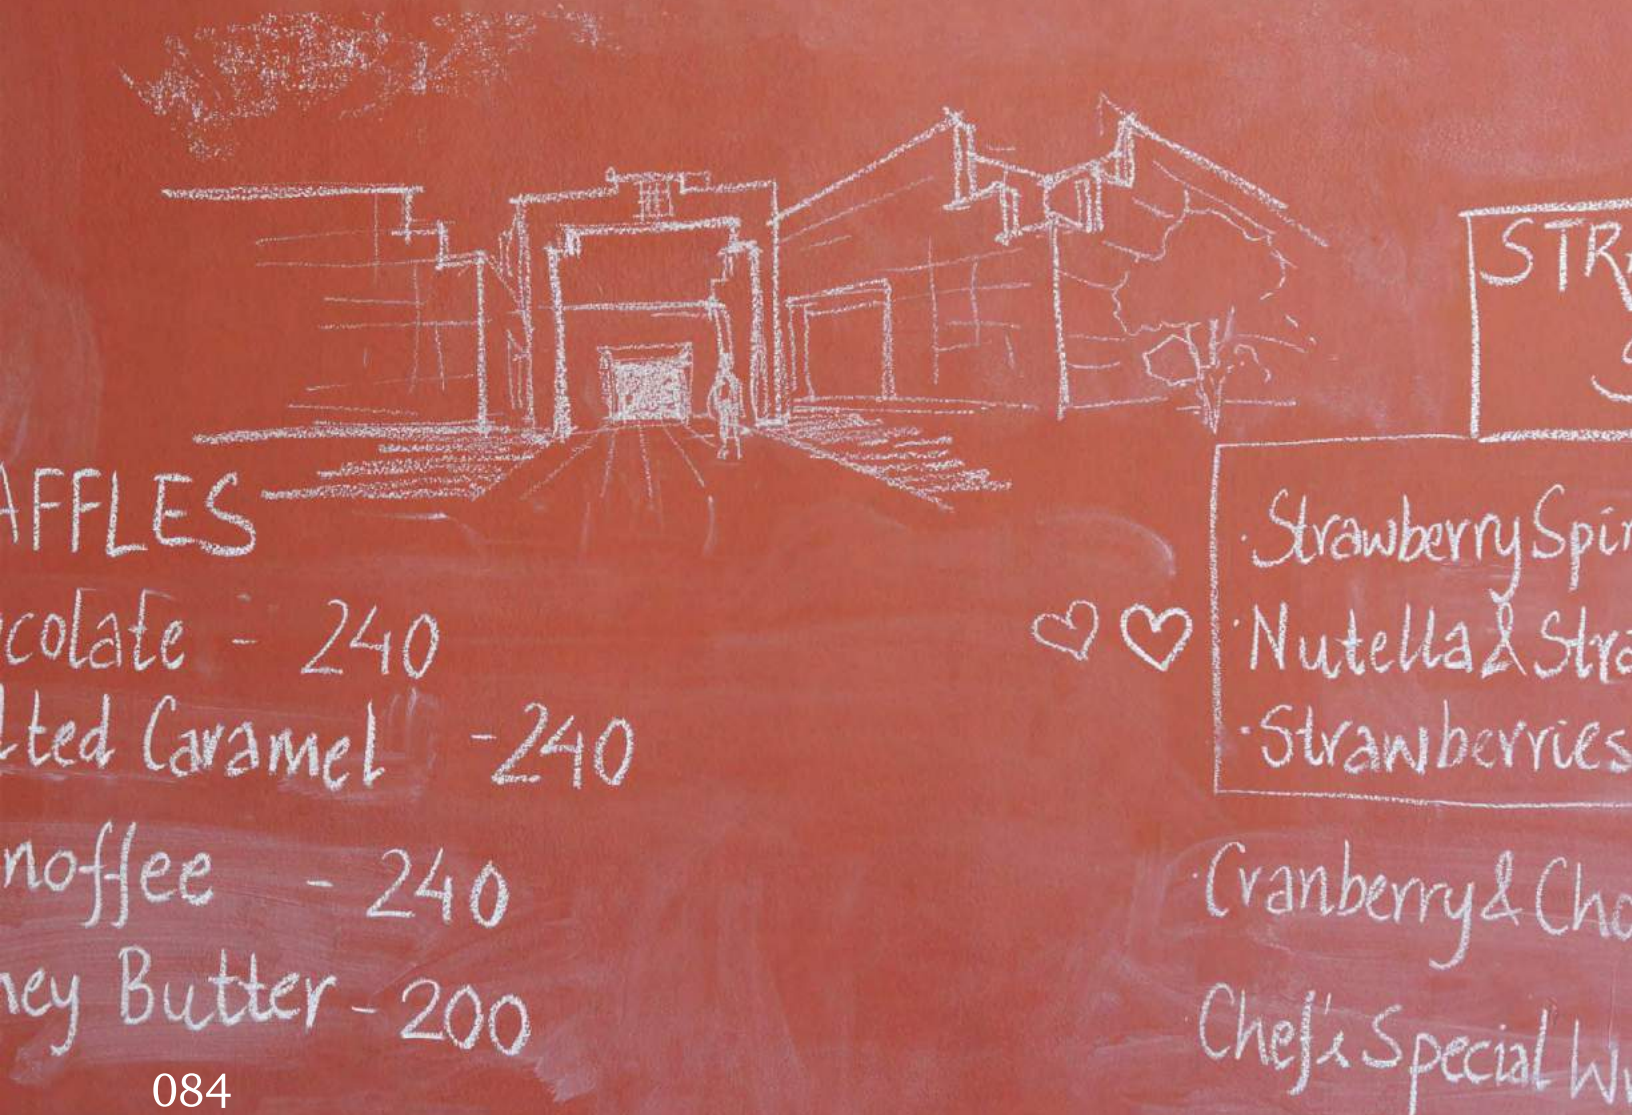 AFFLES
colate - 240
lted Caramel - 240
noffee - 240
ney Butter - 200
STRA
S
· Strawberry Spin
· Nutella & Stra
· Strawberries
· Cranberry & Cho
Chef's Special Wi
084